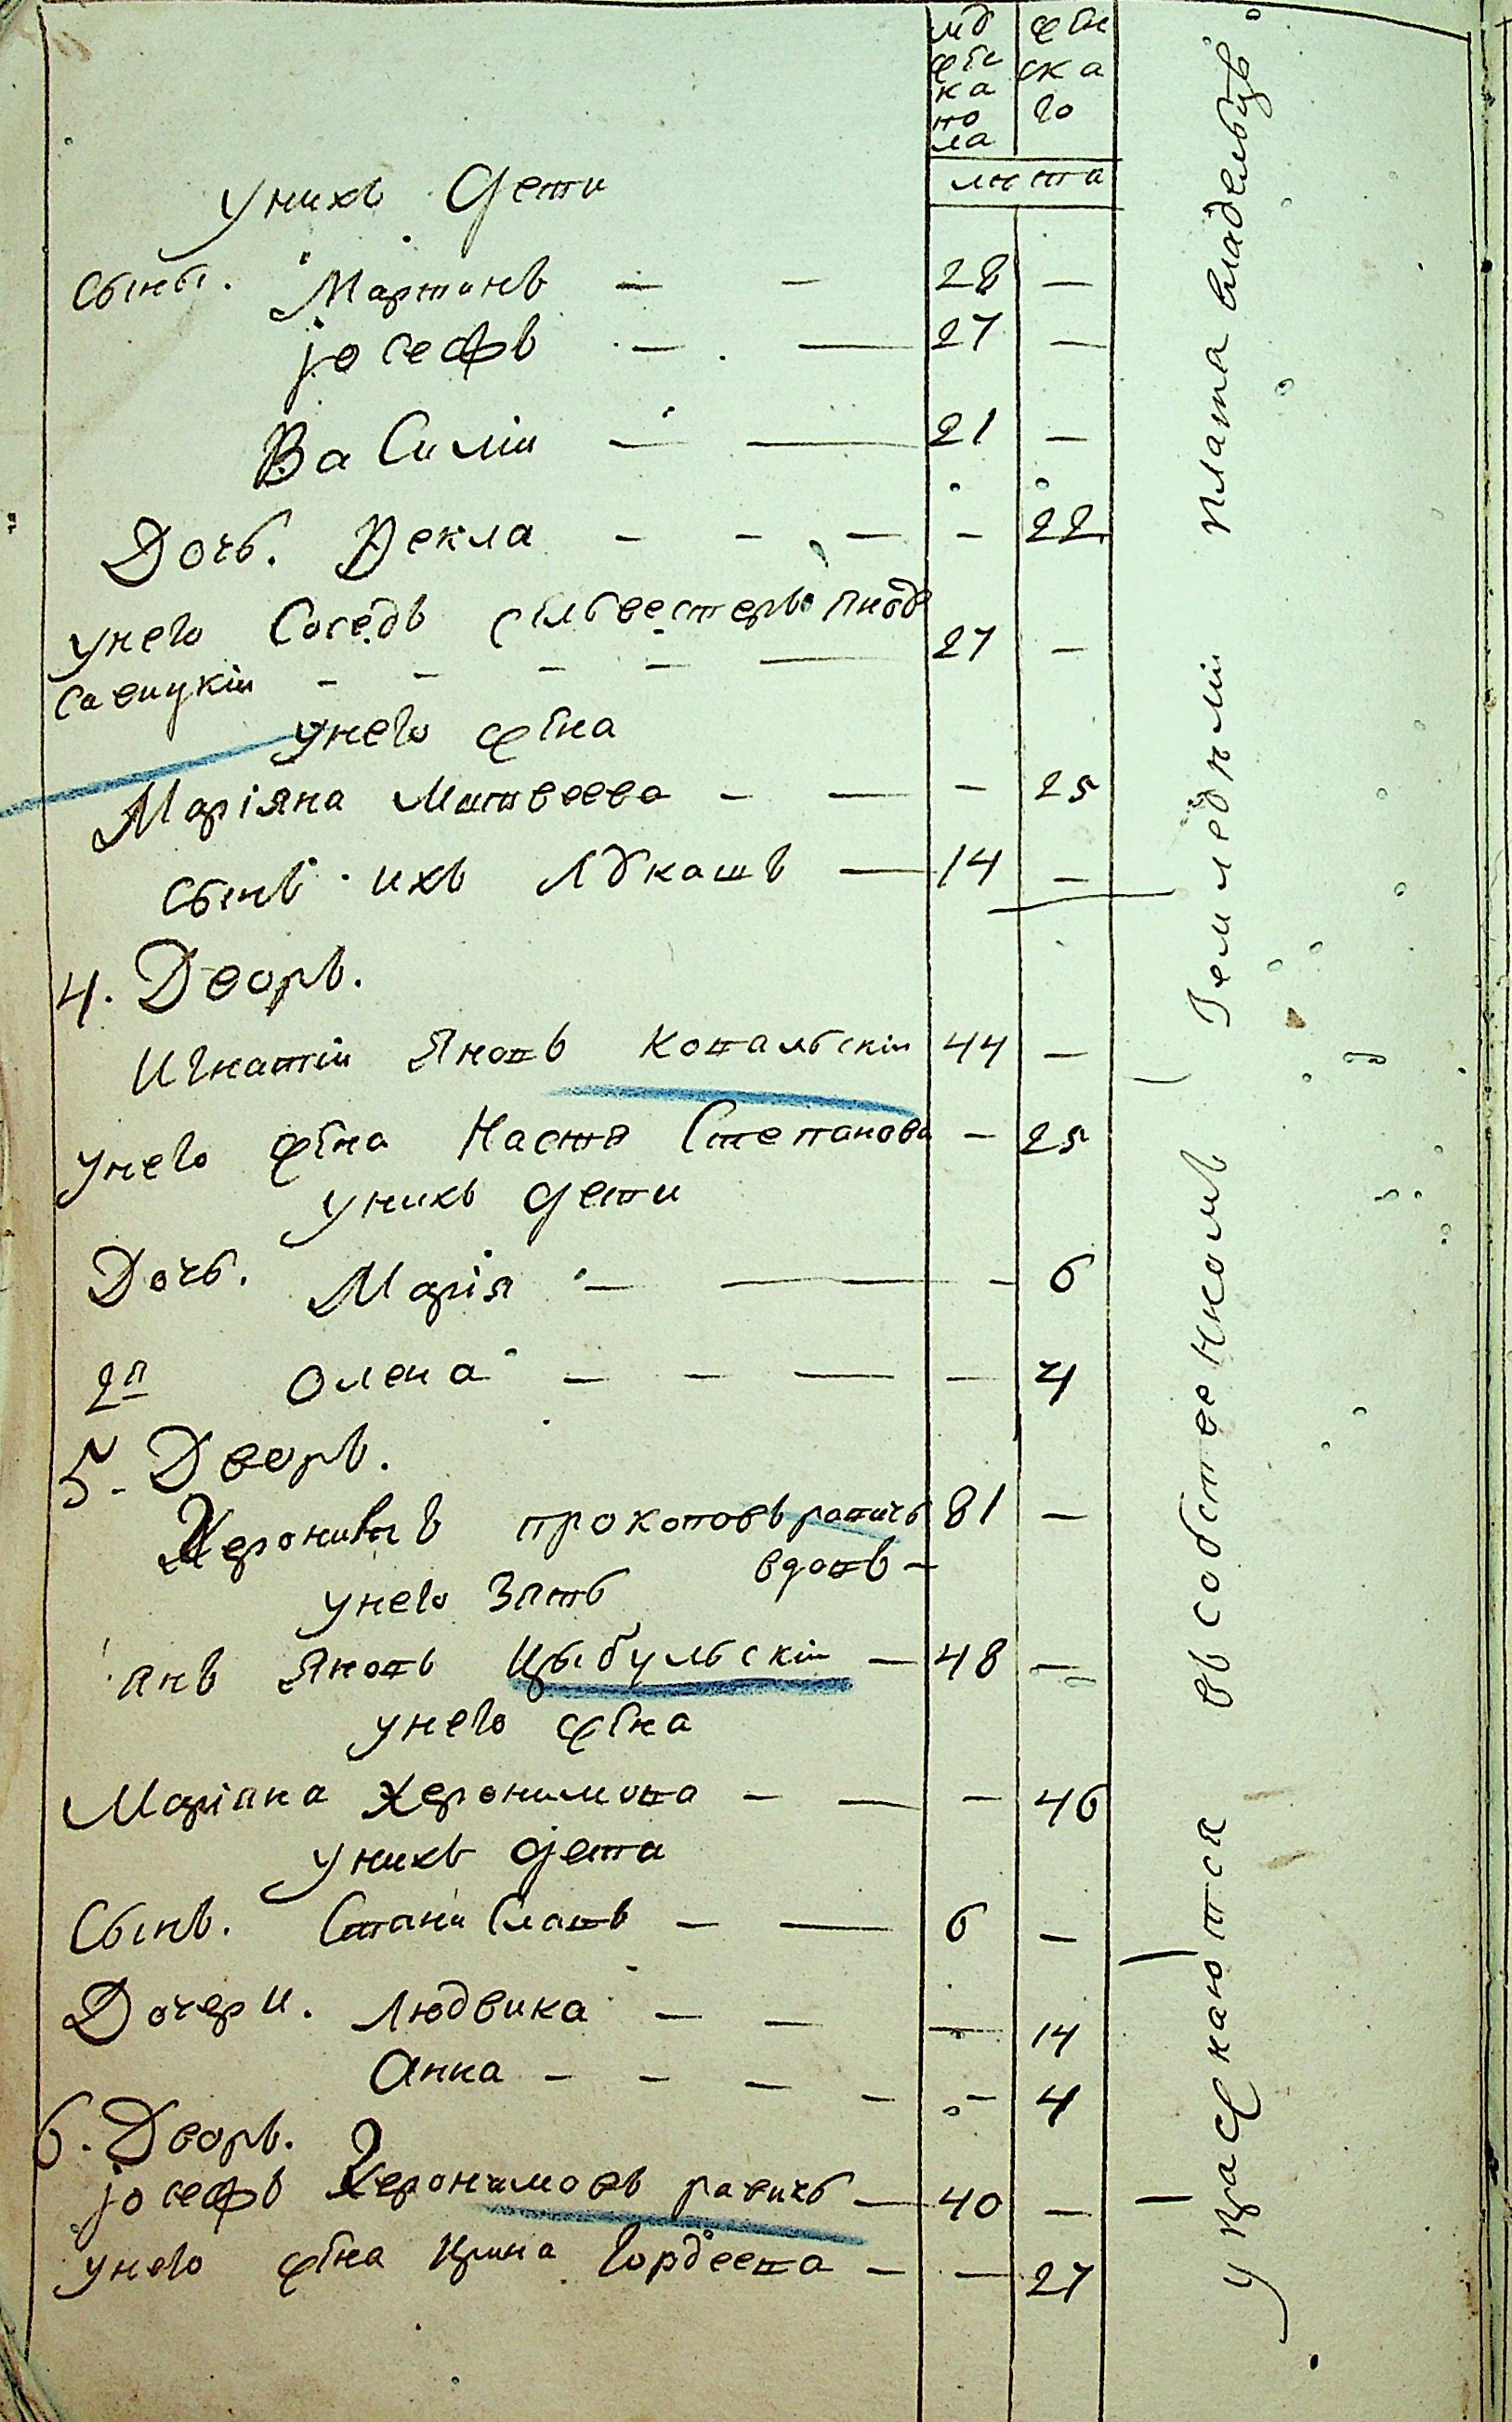 мѫ жес ка по ла
жен ска го
лѣта
у нихъ дети
сыны. Мартинъ — — 28 —
іосефъ — — 27 —
Василій — — 21 —
Дочь. Векла — — — — 22
у него Соседъ сілвестеръ
савицкій — — — — — 27 —
у него жена
Маріяна Матвеева — — — 25
сынъ ихъ Лукашъ — 14 —
4. Дворъ.
Игнатій Яновъ Ковальскій 44 —
у него жена Настя Степанова — 25
у нихъ дети
Дочь. Марія — — — 6
2я Олена — — — — 4
5. Дворъ.
Херонимъ прокоповъ равичъ 81 —
вдовъ —
у него Зять
янъ Яновъ Цыбульскій — 48 —
у него жена
Маріяна Херонимова — — — 46
у нихъ дети
Сынъ. Станиславъ — — 6 —
Дочери. Людвика — — — 14
Анна — — — — — 4
6. Дворъ.
іосефъ Херонимовъ равичъ — 40 —
у него жена Ирина Гордеева — — 27
упражняются въ собственномъ Земледелии плата владельцу